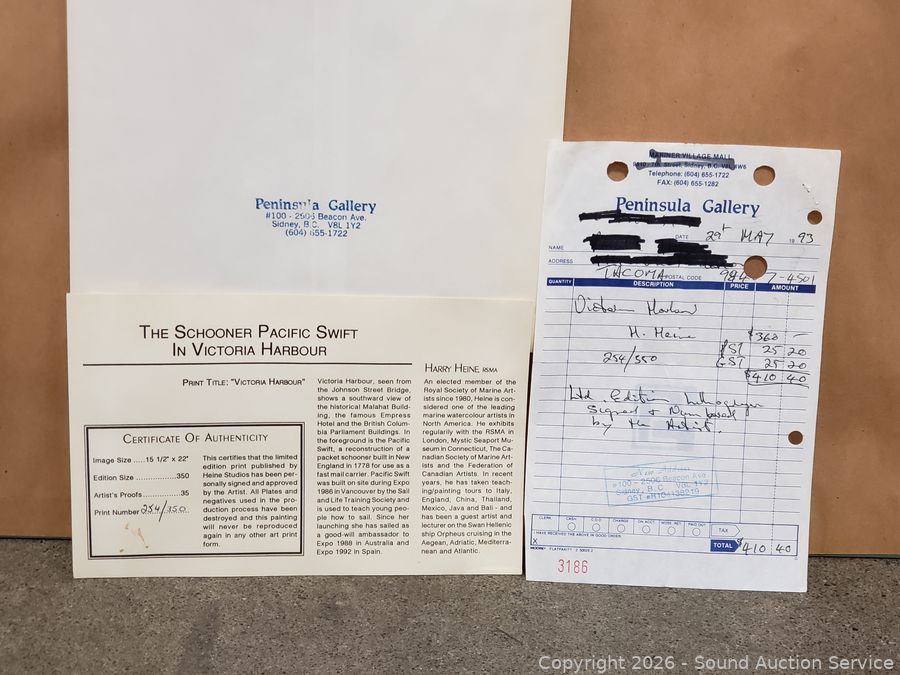 Peninsula Gallery
#100 - 2506 Beacon Ave.
Sidney, B.C. V8L 1Y2
(604) 655-1722
THE SCHOONER PACIFIC SWIFT
IN VICTORIA HARBOUR
PRINT TITLE: "VICTORIA HARBOUR"
CERTIFICATE OF AUTHENTICITY
Image Size .....15 1/2" x 22"
Edition Size ................350
Artist's Proofs..............35
Print Number 254/350
This certifies that the limited
edition print published by
Heine Studios has been per-
sonally signed and approved
by the Artist. All Plates and
negatives used in the pro-
duction process have been
destroyed and this painting
will never be reproduced
again in any other art print
form.
Victoria Harbour, seen from
the Johnson Street Bridge,
shows a southward view of
the historical Malahat Build-
ing, the famous Empress
Hotel and the British Colum-
bia Parliament Buildings. In
the foreground is the Pacific
Swift, a reconstruction of a
packet schooner built in New
England in 1778 for use as a
fast mail carrier. Pacific Swift
was built on site during Expo
1986 in Vancouver by the Sail
and Life Training Society and
is used to teach young peo-
ple how to sail. Since her
launching she has sailed as
a good-will ambassador to
Expo 1988 in Australia and
Expo 1992 in Spain.
HARRY HEINE, RSMA
An elected member of the
Royal Society of Marine Art-
ists since 1980, Heine is con-
sidered one of the leading
marine watercolour artists in
North America. He exhibits
regularly with the RSMA in
London, Mystic Seaport Mu-
seum in Connecticut, The Ca-
nadian Society of Marine Art-
ists and the Federation of
Canadian Artists. In recent
years, he has taken teach-
ing/painting tours to Italy,
England, China, Thailand,
Mexico, Java and Bali - and
has been a guest artist and
lecturer on the Swan Hellenic
ship Orpheus cruising in the
Aegean, Adriatic, Mediterra-
nean and Atlantic.
MARINER VILLAGE MALL
Street, Sidney, B.C. V8L
Telephone: (604) 655-1722
FAX: (604) 655-1282
Peninsula Gallery
DATE 29 MAY 1993
NAME
ADDRESS
TACOMA POSTAL CODE 984 7-4501
QUANTITY DESCRIPTION PRICE AMOUNT
Victoria Harbour
H. Heine $360 -
254/350 PST 25 20
GST 25 20
$410 40
Ltd. Edition
Signed & Numbered
by the Artist.
#100 - 2506 Beacon Ave
Sidney, B.C. V8L 1Y2
GST #R104138219
CLERK CASH C.O.D. CHARGE ON ACCT. MDSE. RET. PAID OUT TAX
I HAVE RECEIVED THE ABOVE IN GOOD ORDER.
X
TOTAL $410 40
3186
Copyright 2026 - Sound Auction Service